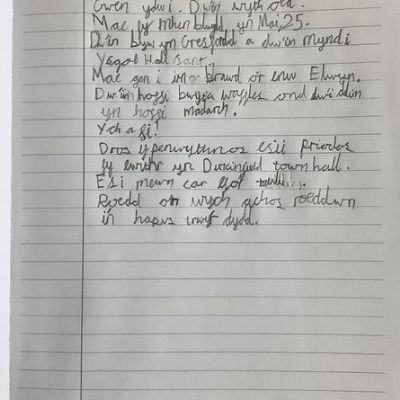 Gwen ydw i. Dwi'n wyth oed.
Mae fy mhen blwyd yn Mai, 25.
Dwi'n byw yn Gresfordd a dwi'n myndi
Ysgol Hall Sant.
Mae gen i un brawd o'r enw Elwyn.
Dwi'n hoffi bwyta waffles ond dwi ddim
yn hoffi madarch.
Ych a fi!
Dros y penwythnos es i i priodas
fy ewithr yn Dukinfield town hall.
Es i mewn car gyd
Roedd o'n wych achos roeddwn
i'n hapus trwy'r dydd.